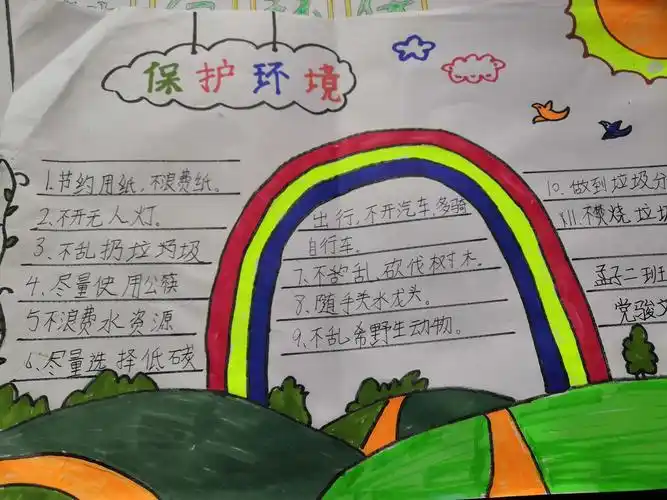 保护环境
1.节约用纸,不浪费纸。
2.不开无人灯。
3.不乱扔垃圾
4.尽量使用公筷
5不浪费水资源
6.尽量选择低碳
出行,不开汽车,多骑
自行车。
7.不乱砍伐树木。
8.随手关水龙头。
9.不乱希野生动物。
10.做到垃圾分
11.不焚烧垃圾
孟子二班
党骏